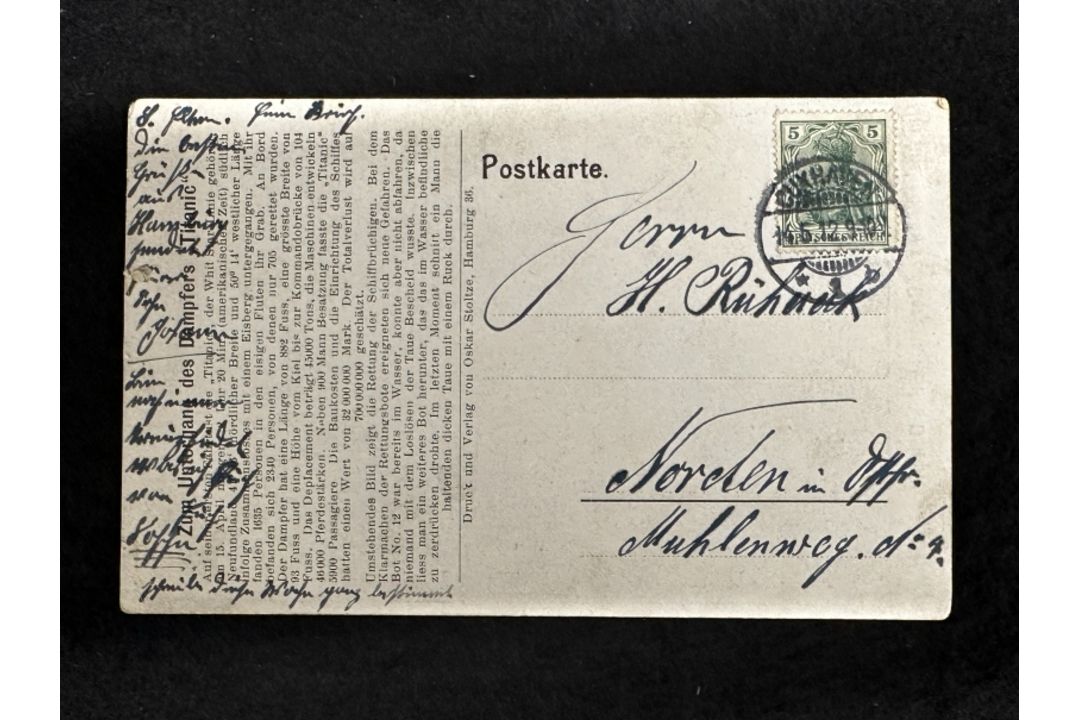 Postkarte.
5 5
CUXHAVEN
14.5.12.9-10
DEUTSCHES REICH
Herrn
H.
Norden in Ostfr.
Mühlenweg. No 9.
Druck und Verlag von Oskar Stoltze, Hamburg 36.
Zum Untergang des Dampfers „Titanic“
Auf seiner ersten „Titanic“ der White
am 15. April Uhr 20 Min (amerikanische Zeit) südlich
Neufundland nördlicher Breite und 50° 14' westlicher Länge
infolge Zusammenstosses mit einem Eisberg untergegangen. Mit ihr
fanden 1635 Personen in den eisigen Fluten ihr Grab. An Bord
befanden sich 2340 Personen, von denen nur 705 gerettet wurden.
Der Dampfer hat eine Länge von 882 Fuss, eine grösste Breite von
93 Fuss und eine Höhe vom Kiel bis zur Kommandobrücke von 104
Fuss. Das Deplacement beträgt 45000 Tons, die Maschinen entwickeln
46000 Pferdestärken. Neben 900 Mann Besatzung fasste die „Titanic“
5000 Passagiere. Die Baukosten und die Einrichtung des Schiffes
hatten einen Wert von 32 000 000 Mark. Der Totalverlust wird auf
700 000 000 geschätzt.
Umstehendes Bild zeigt die Rettung der Schiffbrüchigen. Bei dem
Klarmachen der Rettungsbote ereigneten sich neue Gefahren. Das
Bot No. 12 war bereits im Wasser, konnte aber nicht abfahren, da
niemand mit dem Loslösen der Taue Bescheid wusste. Inzwischen
liess man ein weiteres Bot herunter, das das im Wasser befindliche
zu zerdrücken drohte. Im letzten Moment schnitt ein Mann die
haltenden dicken Taue mit einem Ruck durch.
Die besten
Grüße
aus
Hamburg
sendet
Sohn
Johann
schreibe diese Woche ganz bestimmt